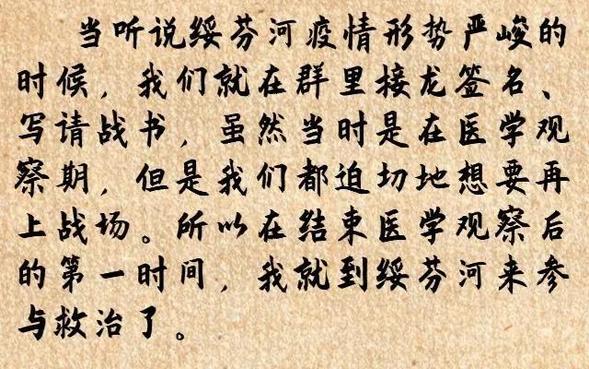 当听说绥芬河疫情形势严峻的
时候，我们就在群里接龙签名、
写请战书，虽然当时是在医学观
察期，但是我们都迫切地想要再
上战场。所以在结束医学观察后
的第一时间，我就到绥芬河来参
与救治了。